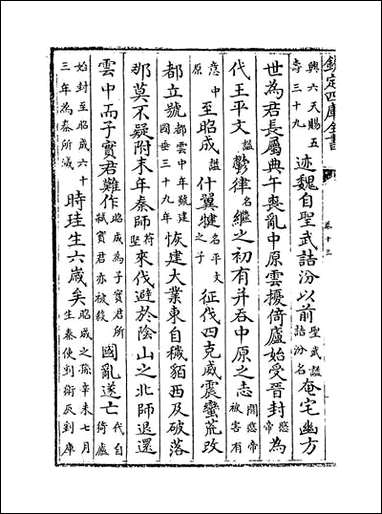 欽定四庫全書 卷十三
興六天賜五壽三十九迹魏自聖武詰汾以前聖武謚詰汾名奄宅幽方
世為君長屬典午喪亂中原雲擾倚廬始受晉封愍帝為
代王平文謚鬱律名繼之初有并吞中原之志聞愍帝被害有
意中原至昭成謚什翼犍名平文之子征伐四克威震蠻荒改
都立號都雲中年號建國垂三十九年恢建大業東自穢貊西及破落
那莫不疑附末年秦師苻堅來伐避於陰山之北師退還
雲中而子實君難作昭成為子實君所弑實君亦被殺國亂遂亡代自倚廬
始封至昭成六十三年為秦所滅時珪生六歲矣昭成之孫辛未七月生秦使到衛辰到庫